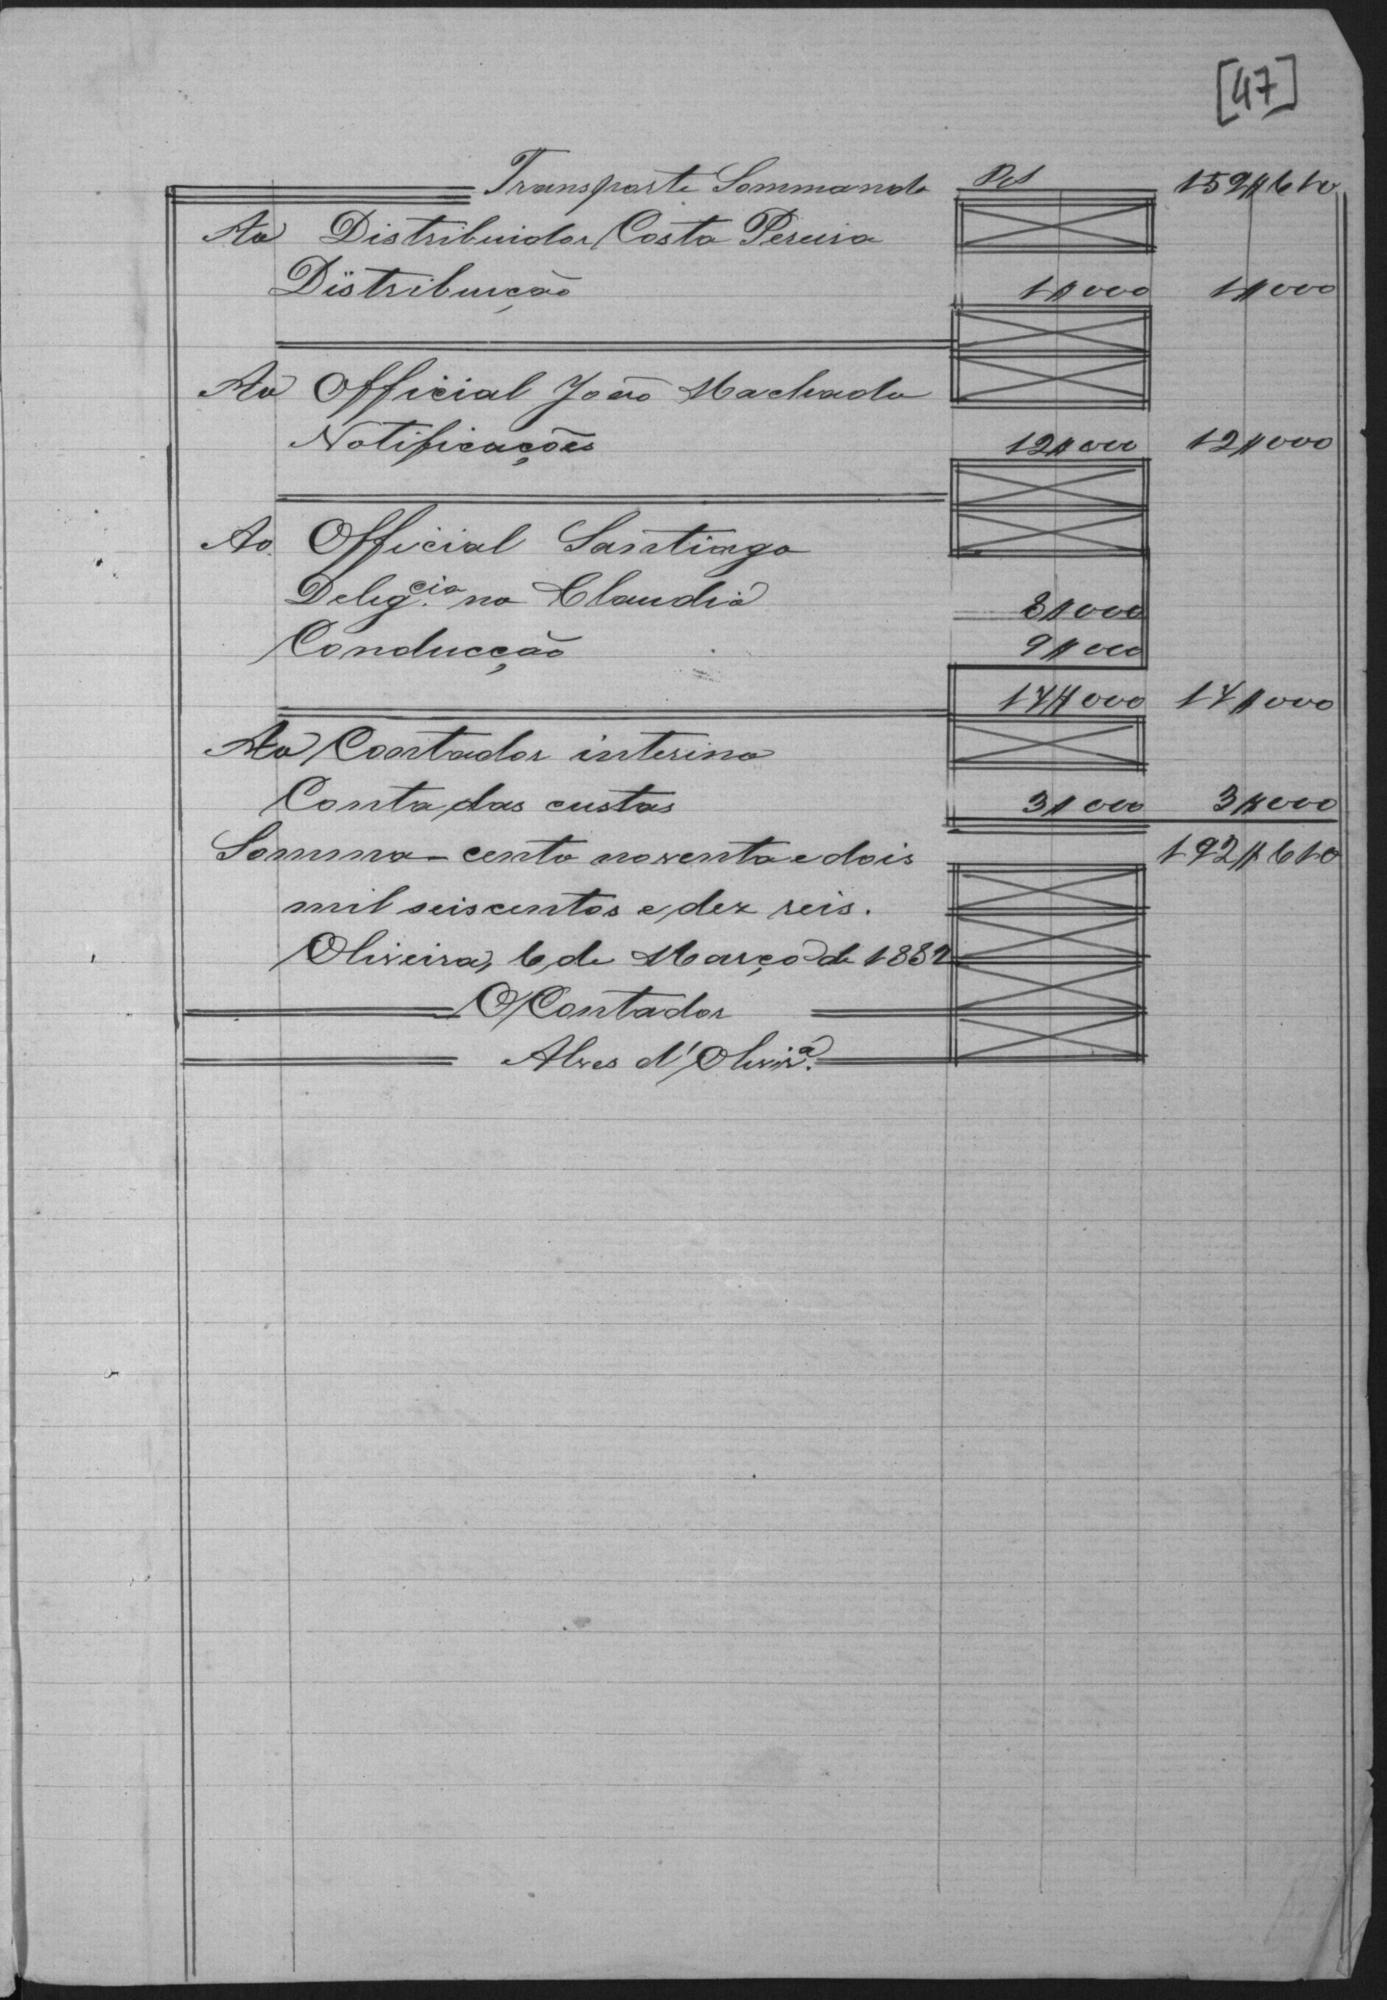 [47]
Transporte Sommando Rs 159$610
Ao Distribuidor Costa Pereira
Distribuição 1$000 1$000
Ao Official João Machado
Notificações 12$000 12$000
Ao Official Santiago
Deleg.cia no Claudio 8$000
Conducção 9$000
17$000 17$000
Ao Contador interino
Conta das custas 3$000 3$000
Somma - cento noventa e dois 192$610
mil seiscentos e dez reis.
Oliveira, 6 de Março de 1882
O Contador
Alves d'Olivr.ª